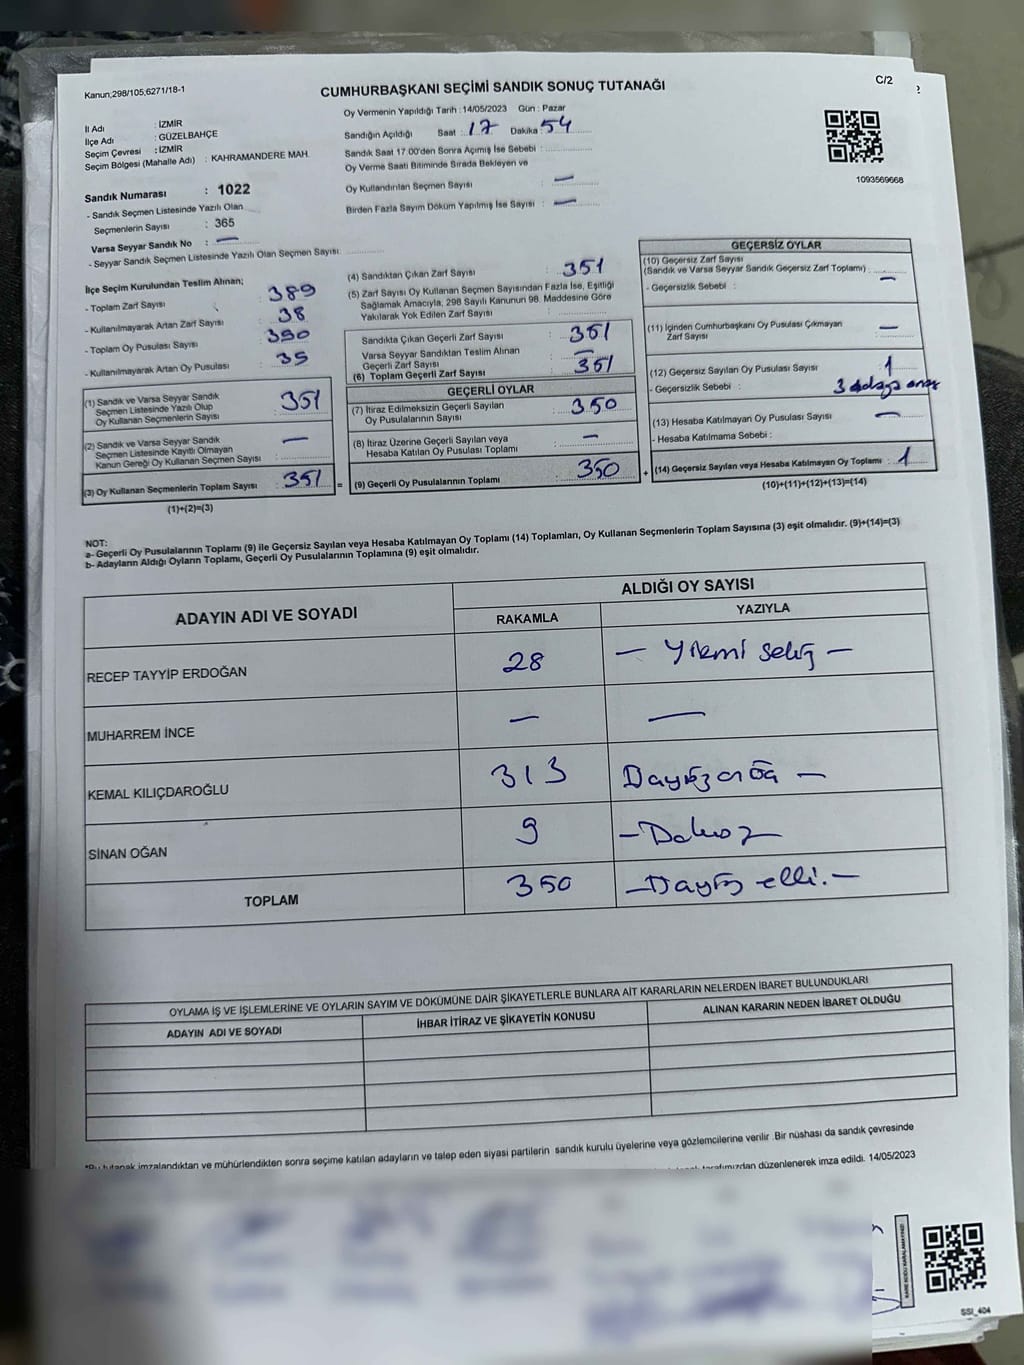 Kanun,298/105,6271/18-1
CUMHURBAŞKANI SEÇİMİ SANDIK SONUÇ TUTANAĞI
C/2
İl Adı : İZMİR
İlçe Adı : GÜZELBAHÇE
Seçim Çevresi : İZMİR
Seçim Bölgesi (Mahalle Adı) : KAHRAMANDERE MAH.
Sandık Numarası : 1022
- Sandık Seçmen Listesinde Yazılı Olan
Seçmenlerin Sayısı : 365
Varsa Seyyar Sandık No : —
- Seyyar Sandık Seçmen Listesinde Yazılı Olan Seçmen Sayısı:
Oy Vermenin Yapıldığı Tarih : 14/05/2023 Gün : Pazar
Sandığın Açıldığı Saat : 17 Dakika : 54
Sandık Saat 17.00'den Sonra Açılmış İse Sebebi :
Oy Verme Saati Bitiminde Sırada Bekleyen ve
Oy Kullandırılan Seçmen Sayısı : —
Birden Fazla Sayım Döküm Yapılmış İse Sayısı : —
1093569668
İlçe Seçim Kurulundan Teslim Alınan;
- Toplam Zarf Sayısı : 389
- Kullanılmayarak Artan Zarf Sayısı : 38
- Toplam Oy Pusulası Sayısı :
- Kullanılmayarak Artan Oy Pusulası :
(1) Sandık ve Varsa Seyyar Sandık
Seçmen Listesinde Yazılı Olup
Oy Kullanan Seçmenlerin Sayısı : 351
(2) Sandık ve Varsa Seyyar Sandık
Seçmen Listesinde Kayıtlı Olmayan
Kanun Gereği Oy Kullanan Seçmen Sayısı : —
(3) Oy Kullanan Seçmenlerin Toplam Sayısı : 351 =
(1)+(2)=(3)
(4) Sandıktan Çıkan Zarf Sayısı : 351
(5) Zarf Sayısı Oy Kullanan Seçmen Sayısından Fazla İse, Eşitliği
Sağlamak Amacıyla, 298 Sayılı Kanunun 98. Maddesine Göre
Yakılarak Yok Edilen Zarf Sayısı :
Sandıkta Çıkan Geçerli Zarf Sayısı : 351
Varsa Seyyar Sandıktan Teslim Alınan
Geçerli Zarf Sayısı : —
(6) Toplam Geçerli Zarf Sayısı : 351
GEÇERLİ OYLAR
(7) İtiraz Edilmeksizin Geçerli Sayılan
Oy Pusulalarının Sayısı : 350
(8) İtiraz Üzerine Geçerli Sayılan veya
Hesaba Katılan Oy Pusulası Toplamı : —
(9) Geçerli Oy Pusulalarının Toplamı : 350 +
GEÇERSİZ OYLAR
(10) Geçersiz Zarf Sayısı
(Sandık ve Varsa Seyyar Sandık Geçersiz Zarf Toplamı) : —
- Geçersizlik Sebebi :
(11) İçinden Cumhurbaşkanı Oy Pusulası Çıkmayan
Zarf Sayısı : —
(12) Geçersiz Sayılan Oy Pusulası Sayısı : 1
- Geçersizlik Sebebi : 3 adaya
(13) Hesaba Katılmayan Oy Pusulası Sayısı : —
- Hesaba Katılmama Sebebi :
(14) Geçersiz Sayılan veya Hesaba Katılmayan Oy Toplamı : 1
(10)+(11)+(12)+(13)=(14)
NOT:
a- Geçerli Oy Pusulalarının Toplamı (9) ile Geçersiz Sayılan veya Hesaba Katılmayan Oy Toplamı (14) Toplamları, Oy Kullanan Seçmenlerin Toplam Sayısına (3) eşit olmalıdır. (9)+(14)=(3)
b- Adayların Aldığı Oyların Toplamı, Geçerli Oy Pusulalarının Toplamına (9) eşit olmalıdır.
ADAYIN ADI VE SOYADI
ALDIĞI OY SAYISI
RAKAMLA YAZIYLA
RECEP TAYYİP ERDOĞAN 28 — Yirmi sekiz —
MUHARREM İNCE — —
KEMAL KILIÇDAROĞLU 313 —
SİNAN OĞAN 9 — Dokuz
TOPLAM 350 — elli. —
OYLAMA İŞ VE İŞLEMLERİNE VE OYLARIN SAYIM VE DÖKÜMÜNE DAİR ŞİKAYETLERLE BUNLARA AİT KARARLARIN NELERDEN İBARET BULUNDUKLARI
ADAYIN ADI VE SOYADI İHBAR İTİRAZ VE ŞİKAYETİN KONUSU ALINAN KARARIN NEDEN İBARET OLDUĞU
*Bu tutanak imzalandıktan ve mühürlendikten sonra seçime katılan adayların ve talep eden siyasi partilerin sandık kurulu üyelerine veya gözlemcilerine verilir. Bir nüshası da sandık çevresinde
tarafımızdan düzenlenerek imza edildi. 14/05/2023
SSI_404